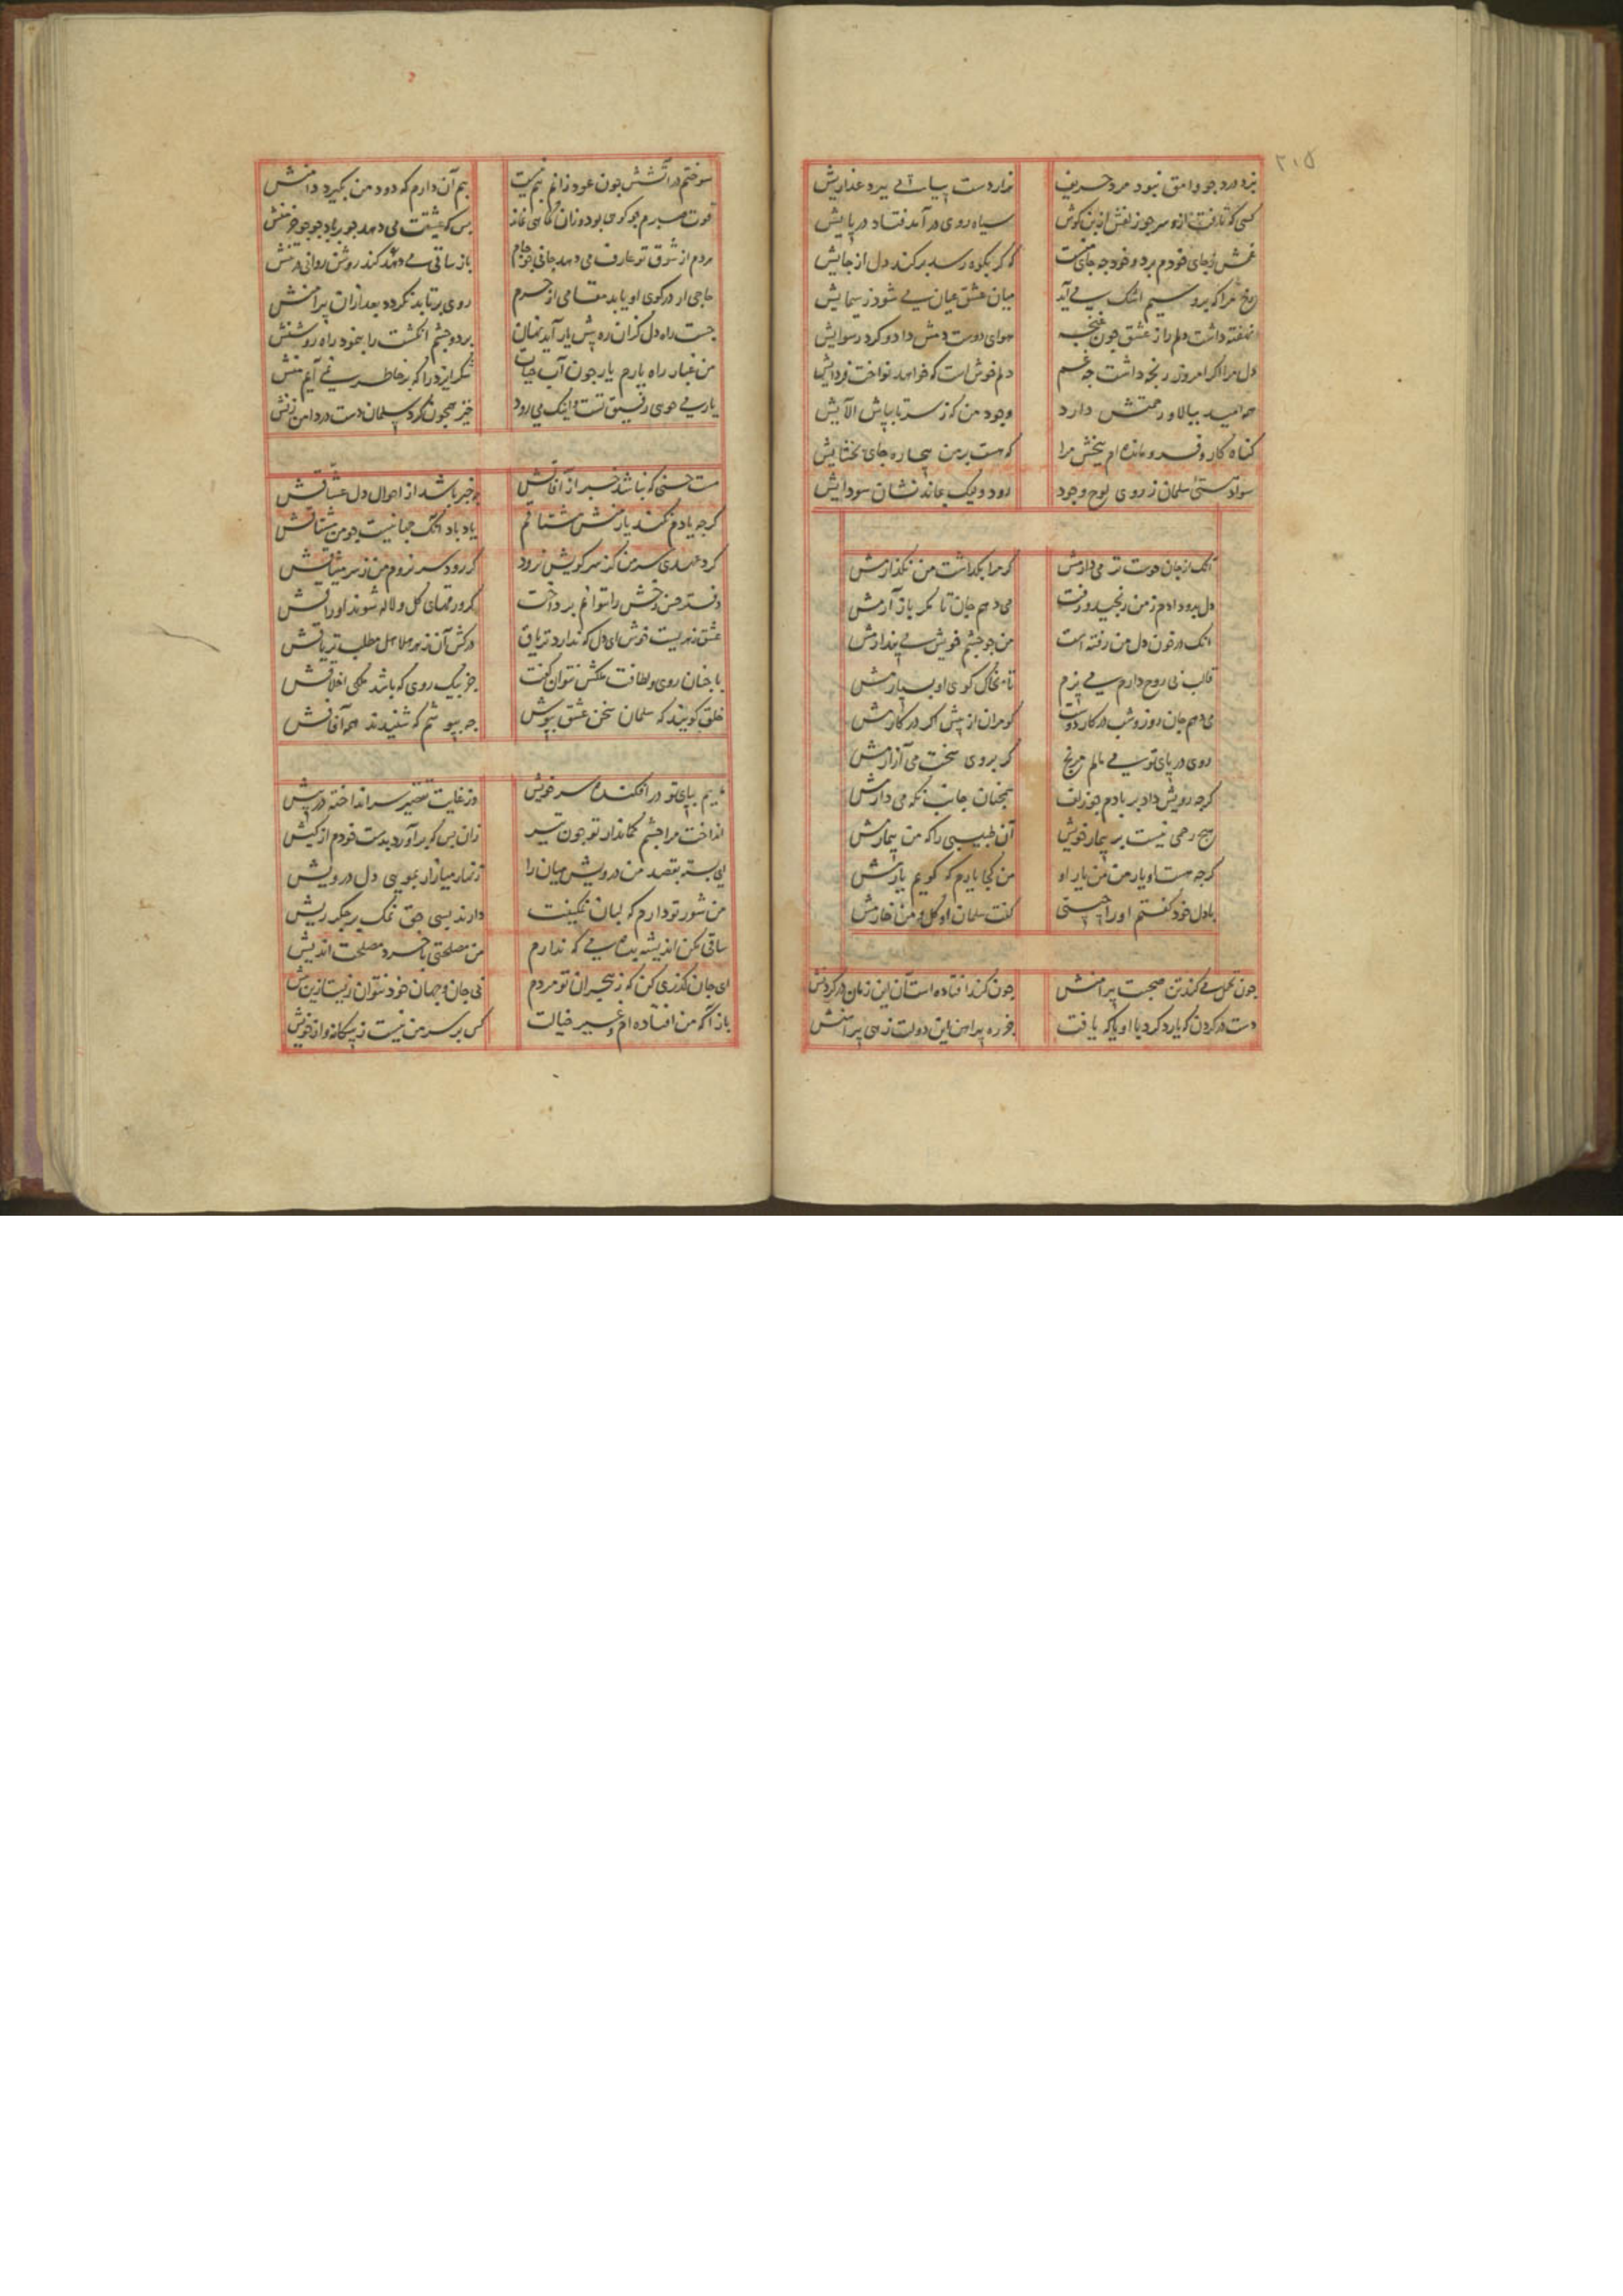 ۲۱۵
بزد درد چو وامق نبود مرد حریف هزار دست بیاساقی برد عذرایش
کسی که تافت ازو سر چو زلفش از بن گوش سیاه روی در آمد فتاد در پایش
غمش ز جای خودم برد و خود چه جای منست که گر بکوه رسد برکند دل از جایش
رخ مرا که برو سیم اشک می آید میان عشق عیان می شود ز سیمایش
نهفته داشت دلم راز عشق چون غنچه هوای دوست دمش داد و کرد رسوایش
دل مرا اگر امروز رنجه داشت چه غم دلم خوش است که خواهد نواخت فردایش
چه امید ببالا و رحمتش دارد وجود من که ز سر تا بپاش الآیش
گناه کار و فرو مانده ام ببخش مرا که هست بر من بیچاره جای بخشایش
سواد هستی سلمان ز روی لوح وجود رود ولیک بماند نشان سودایش
آنک از جان دوست تر می دارمش گر مرا بگذاشت من نگذارمش
دل بدو دادم ز من رنجید و رفت می دهم جان تا مگر باز آرمش
آنک در خون دل من رفته است من چو چشم خویش می پندارمش
قالب بی روح دارم می برم تا بخاک کوی او بسپارمش
می دهم جان روز و شب در کار دوست گو مران از پیش اگر در کارمش
روی در پای تو می مالم مرنج گر بروی سخت می آزارمش
گرچه رویش داد بر بادم چو زلف همچنان جانب نگه می دارمش
هیچ رحمی نیست بر بیمار خویش آن طبیبی را که من بیمارمش
گرچه هست او یار من من یار او من کجا یارم که گویم یارمش
با دل خود گفتم او را چیستی گفت سلمان او گل و من خارمش
چون تحمل می کند تن صحبت پیرامنش چون کند افتاده است آن این زمان در گردنش
دست در گردن که یارد کرد با او یا که یافت بهره پیرامن این دولت زهی پیراهنش
سوختم در آتشش چون عود زانم بیم نیست بیم آن دارم که دود من بگیرد دامنش
قوت صبرم چو کوهی بود و زان کاهی نماند بس که عشقت می دهد جو بر باد جو جو خرمنش
مردم از شوق تو عارف می دهد جانی چو جام باز ساقی می دهد کند روشن روانی در تنش
حاجی ار در کوی او یابد مقامی از حرم روی بر تابد نگردد بعد از آن پیرامنش
جست راه دل کزان ره پیش یار آید نهان بر دو چشم انگشت را بنمود راه روشنش
من غبار راه یارم یار چون آب حیات شکر ایزد را که بر خاطر نمی آید منش
یار می جوی رفیق تست و اینک می رود خیز همچون گرد سلمان دست در دامن زنش
مست حسنی که نباشد خبر از آفاقش چه خبر باشد از احوال دل عشاقش
گرچه یادم نکند یار منش مشتاقم یاد باد آنک جهانیست چو من مشتاقش
کرد عهدی سر من کز سر کویش نرود گر رود سر نروم من ز سر میثاقش
دفتر حسن رخش را نتوانم پرداخت گر ورقهای گل و لاله شوند اوراقش
عشق زهریست خوش ای دل که ندارد تریاق درکش آن زهر هلاهل مطلب تریاقش
با چنان روی و لطافت ملکش نتوان گفت جز بیک روی که باشد ملکی اخلاقش
خلق گویند که سلمان سخن عشق بپوش چه بپوشم که شنیدند همه آفاقش
ماییم بپای تو در افکنده سر خویش وز غایت تقصیر سر انداخته در پیش
انداخت مرا چشم کماندار تو چون تیر زان پس که بر آورد بدست خودم از کیش
ای بسته بقصد من درویش میان را زنهار میازار بمویی دل درویش
من شور تو دارم که لبان نمکینت دارند بسی حق نمک بر جگر ریش
ساقی مکن اندیشه بده می که ندارم من مصلحتی با خرد مصلحت اندیش
ای جان گذری کن که ز هجران تو مردم بی جان و جهان خود نتوان زیست ازین بیش
باز آ که من افتاده ام و غیر خیالت کس بر سر من نیست ز بیگانه و از خویش